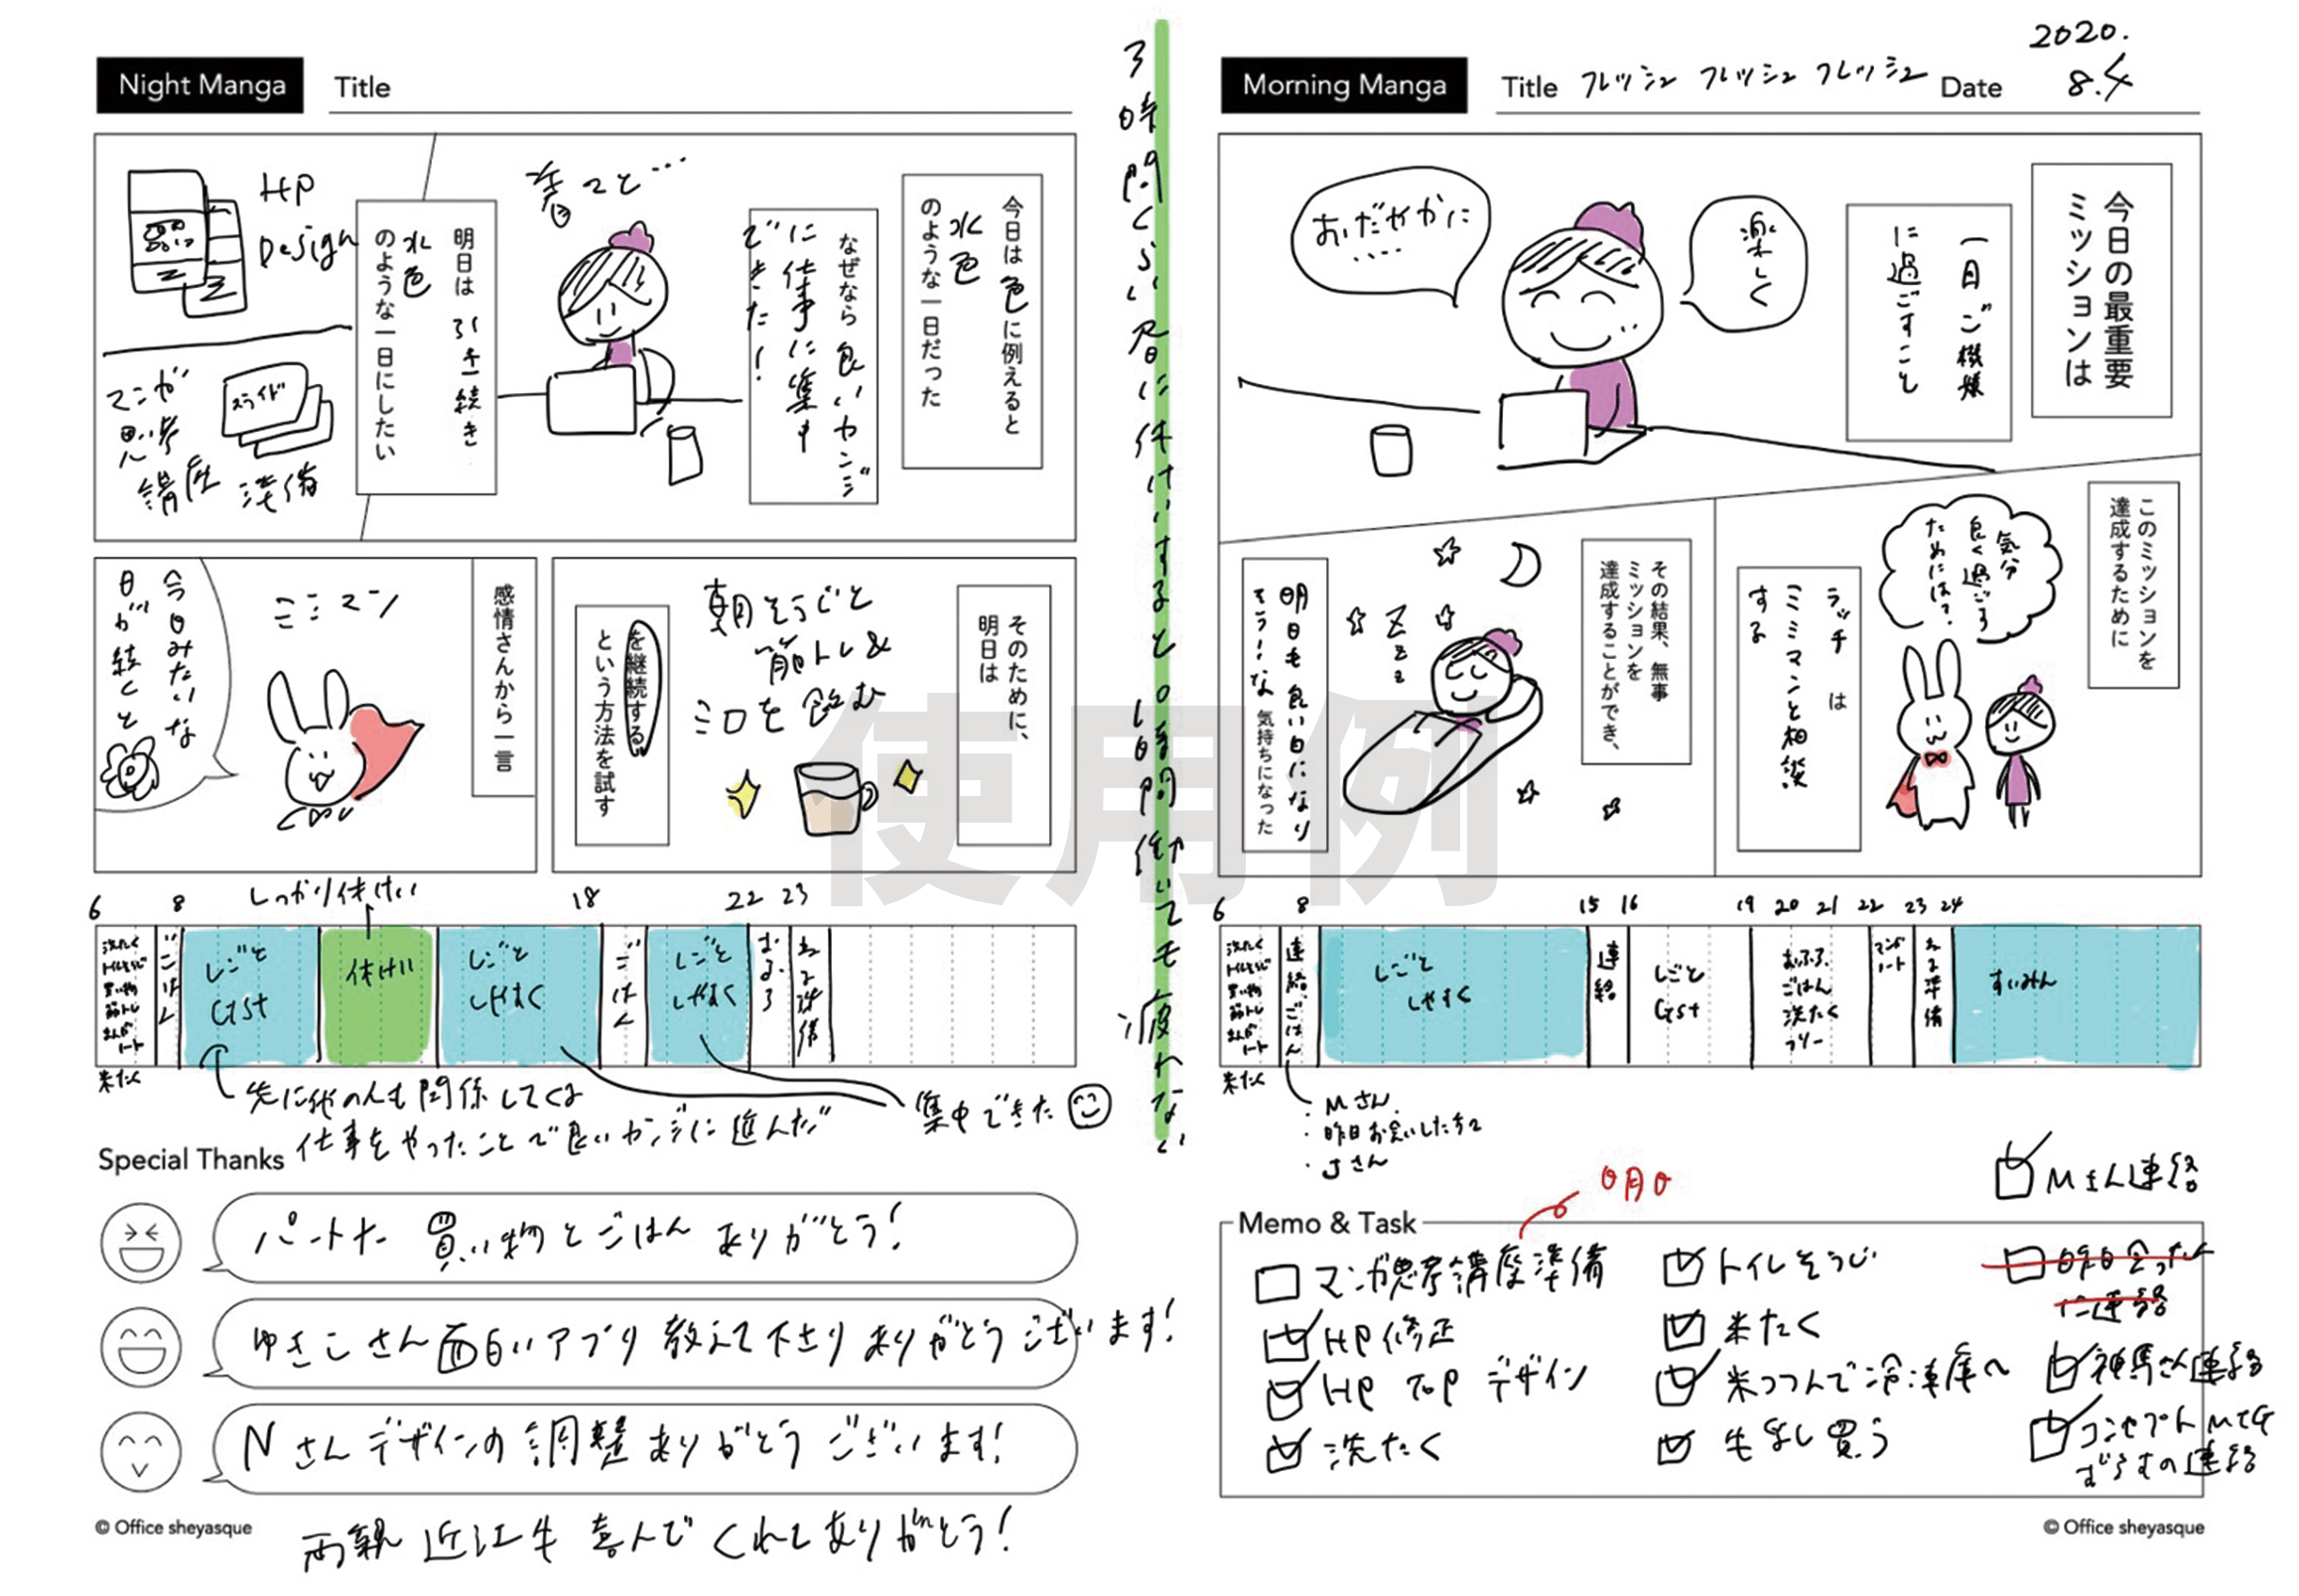 Morning Manga
Title フレッシュ フレッシュ フレッシュ
Date 2020.
8.4
今日の最重要
ミッションは
一日ご機嫌
に過ごすこと
楽しく
おだやかに
····
このミッションを
達成するために
気分
良く過ごす
ためには？
ラッチ は
ミミマンと相談
する
その結果、無事
ミッションを
達成することができ、
明日も良い日になり
そう！な 気持ちになった
Z z z
6 8 15 16 19 20 21 22 23 24
洗たく
トイレそうじ
買い物
筋トレ
まんが
ノート
米たく
連絡、ごはん
しごと
しゃすく
連絡
しごと
Gst
おふろ、
ごはん
洗たく
フリー
マンガ
ノート
ねる準備
すいみん
・Mさん
・昨日お会いした方々
・Jさん
Mさん連絡
Memo & Task
０月０
マンガ思考講座準備
HP修正
HP TOP デザイン
洗たく
トイレそうじ
米たく
米つつんで冷凍庫へ
生ゴミ買う
昨日会った人
に連絡
神馬さん連絡
コンセプトMTG
© Office sheyasque
3時間くらい昼に休けいすると10時間働いても疲れない
Night Manga
Title
今日は色に例えると
水色
のような一日だった
なぜなら 良いカンジ
に仕事に集中
できた！
着々と…
明日は 引き続き
水色
のような一日にしたい
HP
Design
マンガ
思考
講座 準備
スライド
そのために、
明日は
朝そうじと
筋トレ&
ミロを飲む
を継続する
という方法を試す
感情さんから一言
ミミマン
今日みたいな
日が続くと
6 8 18 22 23
しっかり休けい
洗たく
トイレそうじ
買い物
筋トレ
まんが
ノート
米たく
ごはん
しごと
Gst
休けい
しごと
しゃすく
ごはん
しごと
しゃすく
おふろ
ねる準備
先に他の人も関係してくる
仕事をやったことで良いカンジに進んだ
集中できた
Special Thanks
パートナー 買い物とごはん ありがとう！
ゆきこさん面白いアプリ教えて下さりありがとうございます！
Nさんデザインの調整ありがとうございます！
両親 近江牛 喜んでくれてありがとう！
© Office sheyasque
使用例